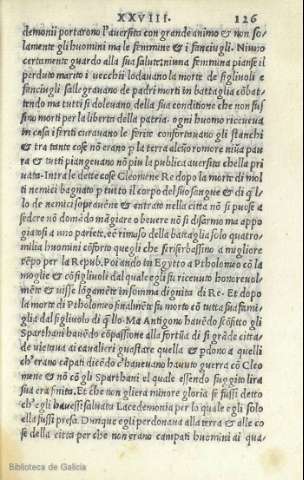 XXVIII. 126
demonii portarono l'aversita con grande animo & non so
lamente gli huomini ma le femmine & i fanciugli. Niuno
certamente guardo alla sua salute: niuna femmina pianse il
perduto marito i vecchii lodavano la morte de figlivoli e
fanciugli salle gravano de padri morti in battaglia cōbat
tendo ma tutti si dolevano della sua conditione che non fus
sino morti per la liberta della patria. ogni huomo riceveva
in casa i feriti curavano le ferite confortavano gli stanchi
& tra tante cose nō erano p la terra alcūo romore niūa pau
ra & tutti piangevano nō piu la publica aversita che lla pri
vata. Intra le dette cose Cleomene Re dopo la morte di mol
ti nemici bagnato p tutto il corpo del suo sangue & di q̄l
lo de nemici sopravēne & entrato nella citta nō si puose a
sedere nō domādo māgiare o bevere nō si disarmo ma appo
giatosi a uno pariete, & rimaso della battaglia solo quatro
milia huomini cōforto quegli che serserbassino a migliore
tēpo per la Repub. Poi ando in Egytto a Ptholomeo cō la
moglie & co figlivoli dal quale egli fu ricevuto honorevol
mēte & visse lōgamēte in somma dignita di Re. Et dopo
la morte di Ptholomeo finalmēte fu morto cō tutta sua fami
glia dal figlivolo di q̄llo. Ma Antigono havēdo scōfitto gli
Sparthani havēdo cōpassione alla fortūa di si grāde citta
de vietava ai cavalieri guastare quella & pdono a quelli
ch'erano cāpati dicēdo c'havevano havuto guerra cō Cleo
mene & nō cō gli Sparthani el quale essendo fuggito l'ira
sua era finita. Et che non gliera minore gloria se fussi detto
ch'egli havessi salvata Lacedemonia per lo quale egli solo
ella fussi presa. Dunque egli perdonava alla terra & alle co
se della citta per che non erano campati huomini ai qua
Biblioteca de Galicia